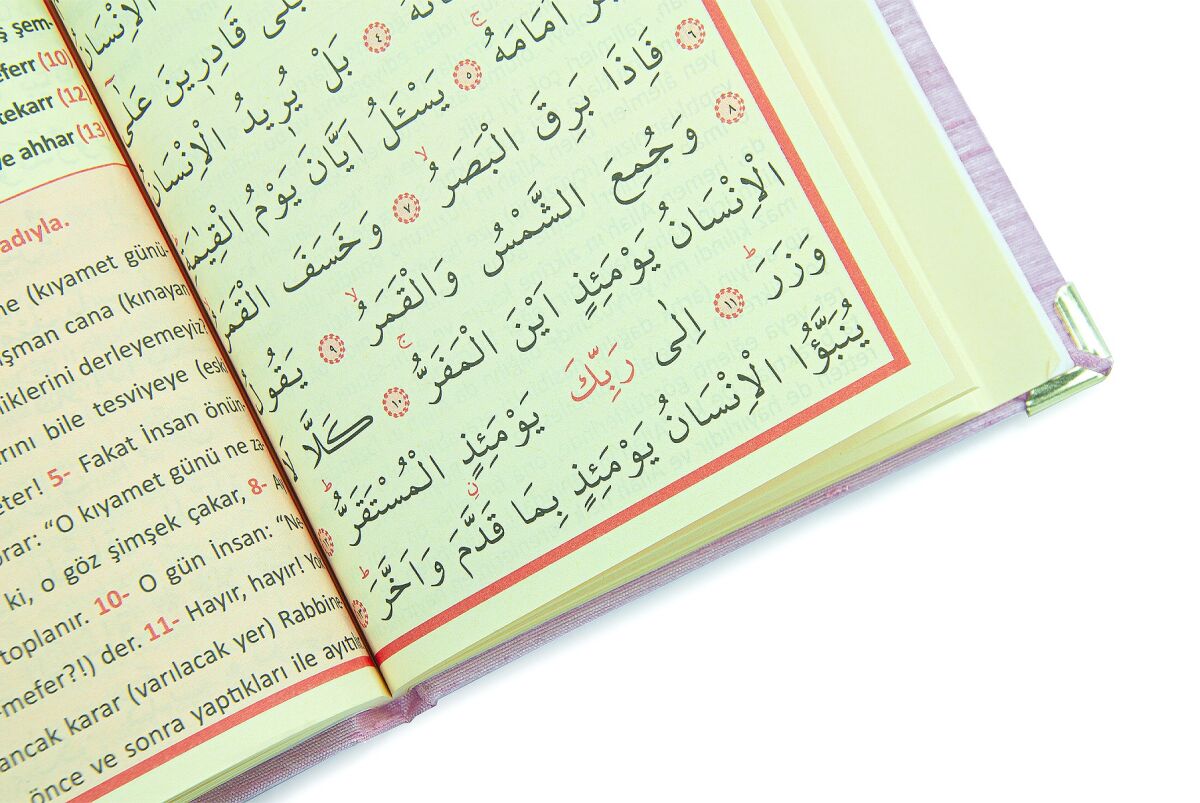 ş şem-
eferr (10)
tekarr (12)
ve ahhar (13)
adıyla.
ne (kıyamet günü-
ışman cana (kınayan
iklerini derleyemeyiz?
arını bile tesviyeye (eski
eter! 5- Fakat İnsan önün-
orar: “O kıyamet günü ne za-
ki, o göz şimşek çakar, 8-
toplanır. 10- O gün İnsan: “Ne
-mefer?!) der. 11- Hayır, hayır! Yok
ancak karar (varılacak yer) Rabbine-
önce ve sonra yaptıkları ile ayıtılır
بَلٰى قَادِر۪ينَ عَلٰٓى
٤ بَلْ يُر۪يدُ الْاِنْسَانُ
اَمَامَهُۚ ٥ يَسْـَٔلُ اَيَّانَ يَوْمُ الْقِيٰمَةِ
٦ فَاِذَا بَرِقَ الْبَصَرُۙ ٧ وَخَسَفَ الْقَمَرُۙ
٨ وَجُمِعَ الشَّمْسُ وَالْقَمَرُۙ ٩ يَقُولُ
الْاِنْسَانُ يَوْمَئِذٍ اَيْنَ الْمَفَرُّۚ ١٠ كَلَّا لَا
وَزَرَۜ ١١ اِلٰى رَبِّكَ يَوْمَئِذٍ الْمُسْتَقَرُّۜ ١٢
يُنَبَّؤُا الْاِنْسَانُ يَوْمَئِذٍ بِمَا قَدَّمَ وَاَخَّرَۜ ١٣